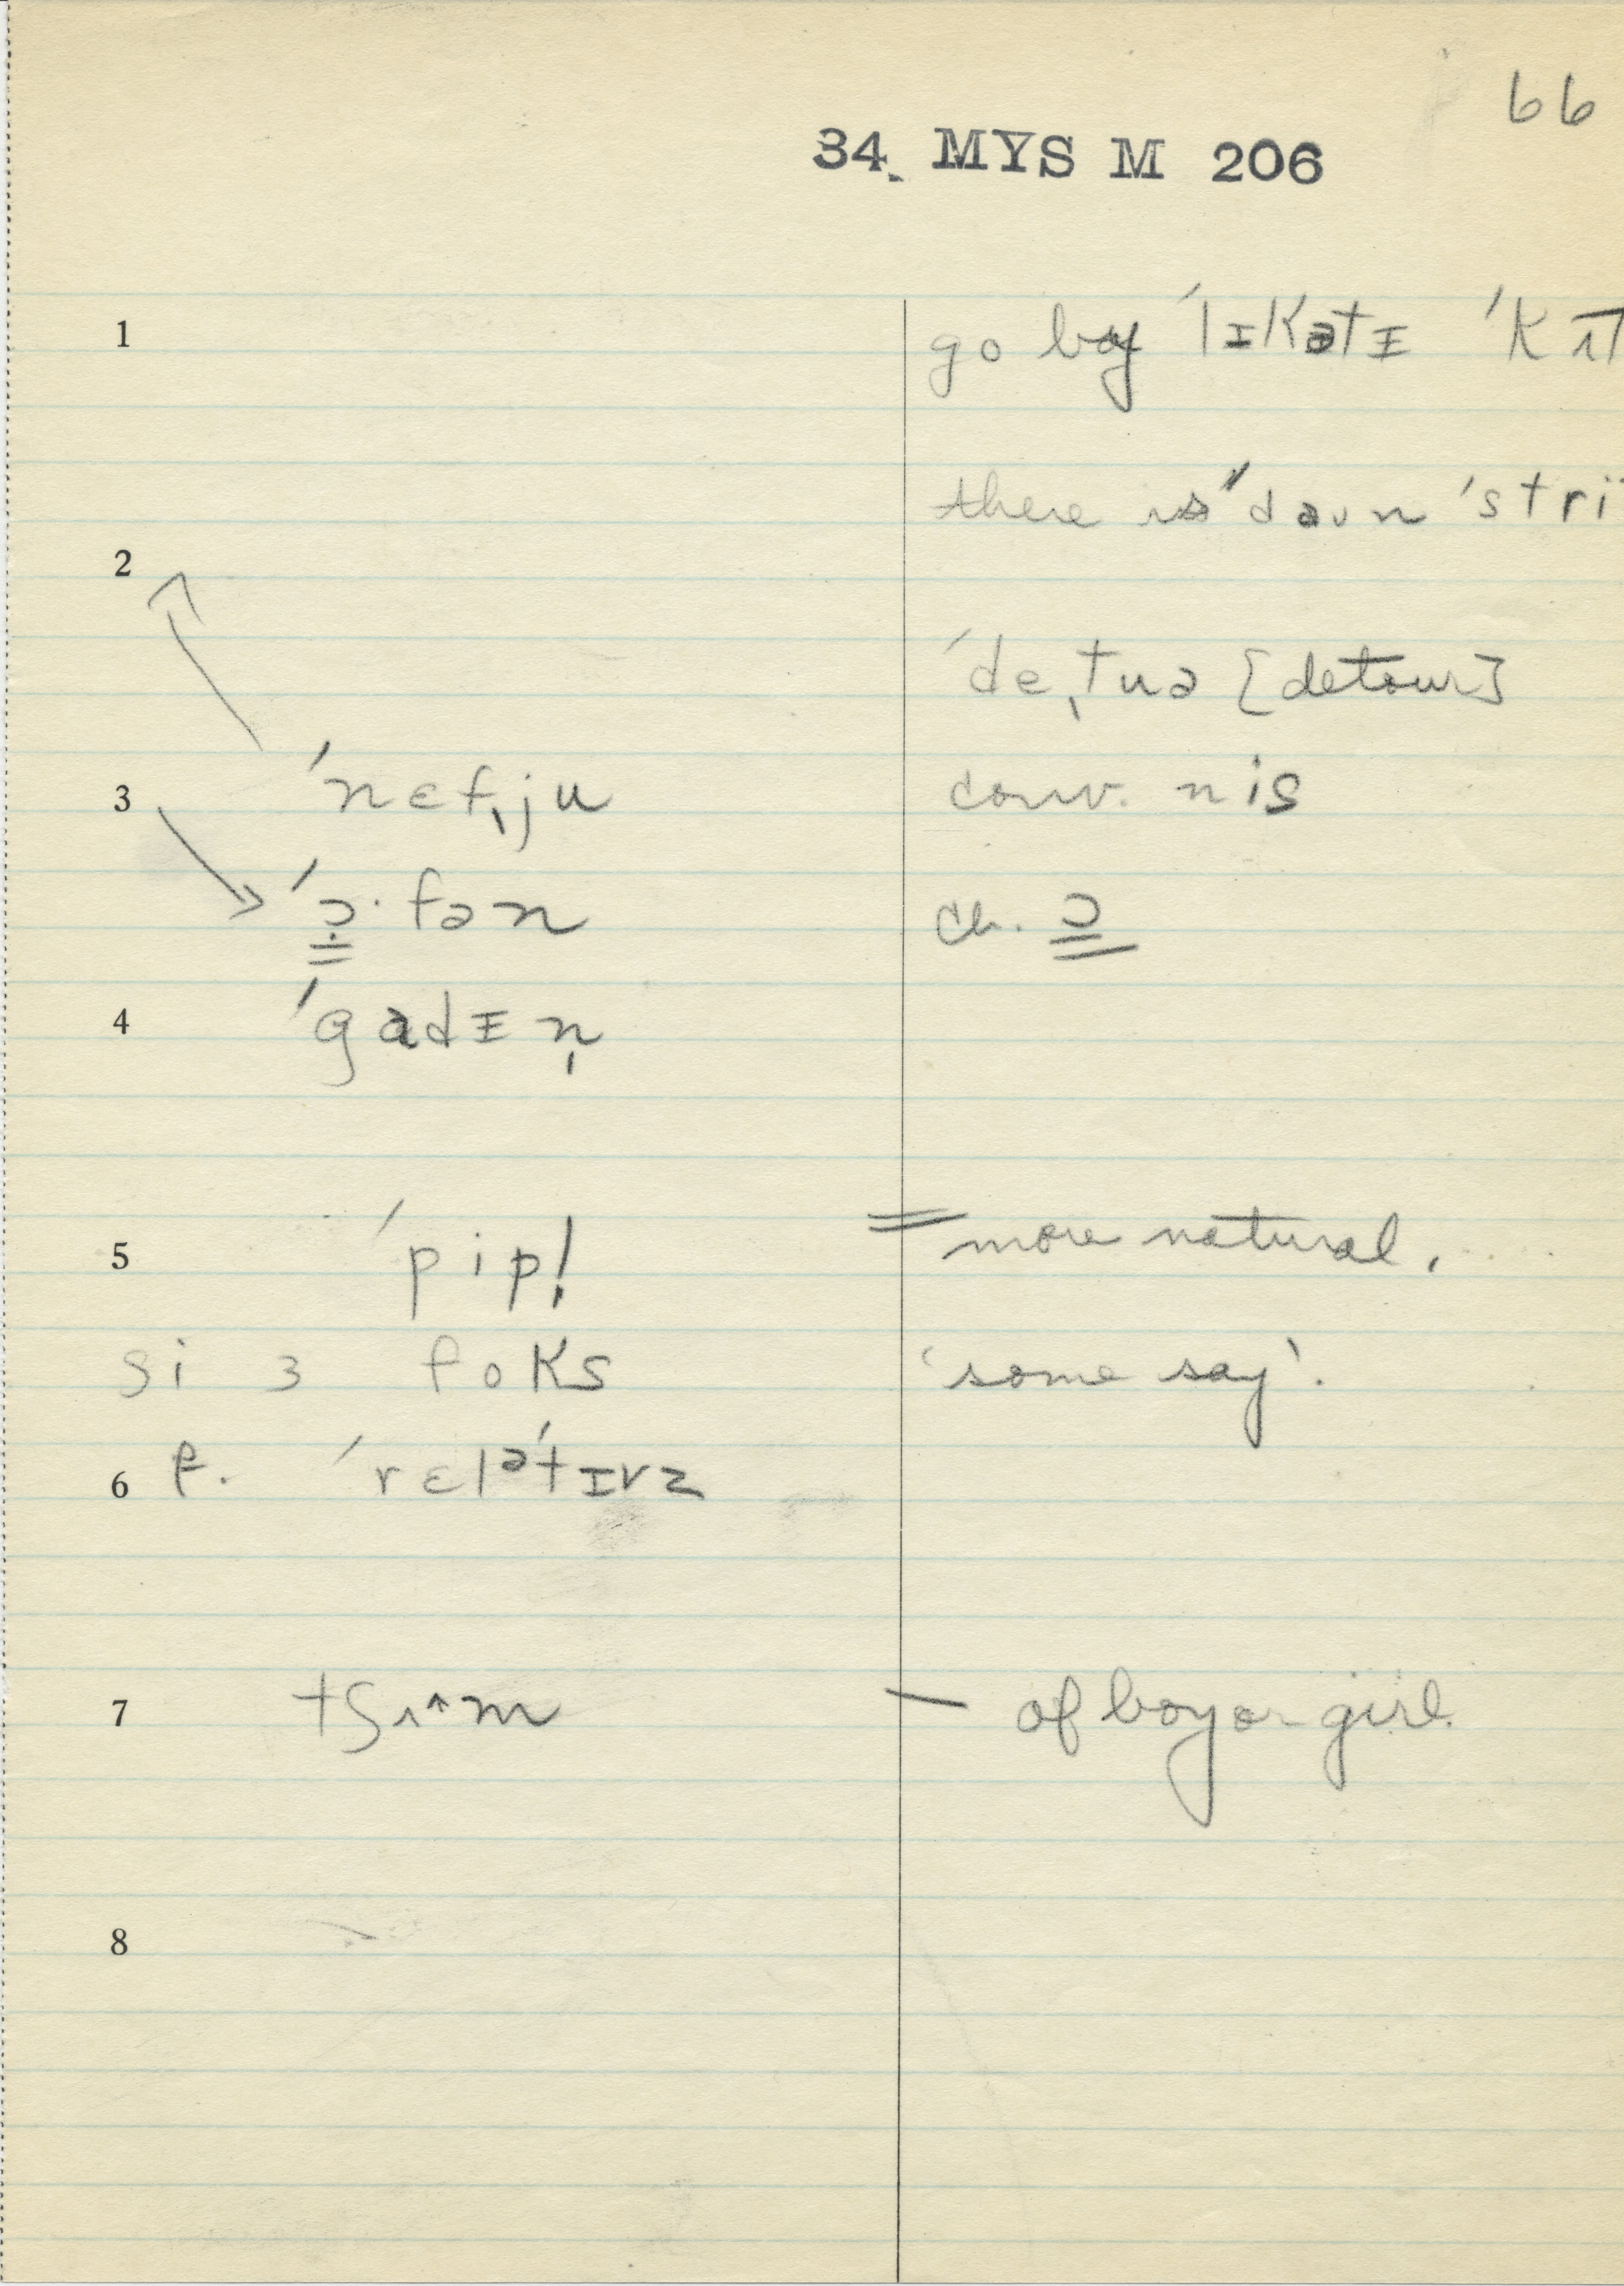 66
34. MYS M 206
1 go by ˈlɪkətɪ ˈkɪt
there is ˈdaʊn ˈstri
2
ˈdeˌtuə [detour]
3 ˈnɛfˌju conv. nis
ˈɔ̣·fən ch. ɔ
4 ˈgadɪn̩
5 ˈpipl̩ = more natural.
si ɜ foks 'some say'.
6 f. ˈrɛlətɪvz
7 tʃʌ^m — of boy or girl.
8